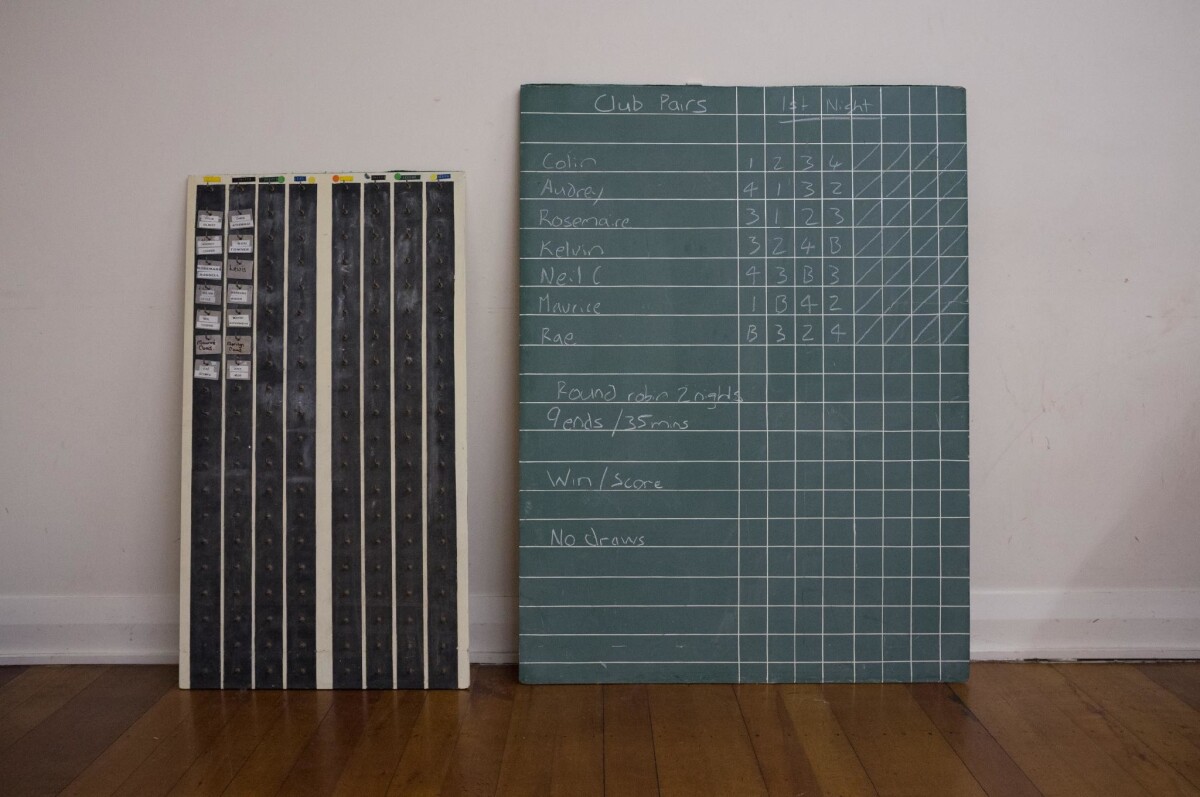 Lewis
Club Pairs 1st Night
Colin 1 2 3 4
Audrey 4 1 3 2
Rosemaire 3 1 2 3
Kelvin 3 2 4 B
Neil C 4 3 B 3
Maurice 1 B 4 2
Rae B 3 2 4
Round robin 2 nights
9 ends / 35 mins
Win / Score
No draws